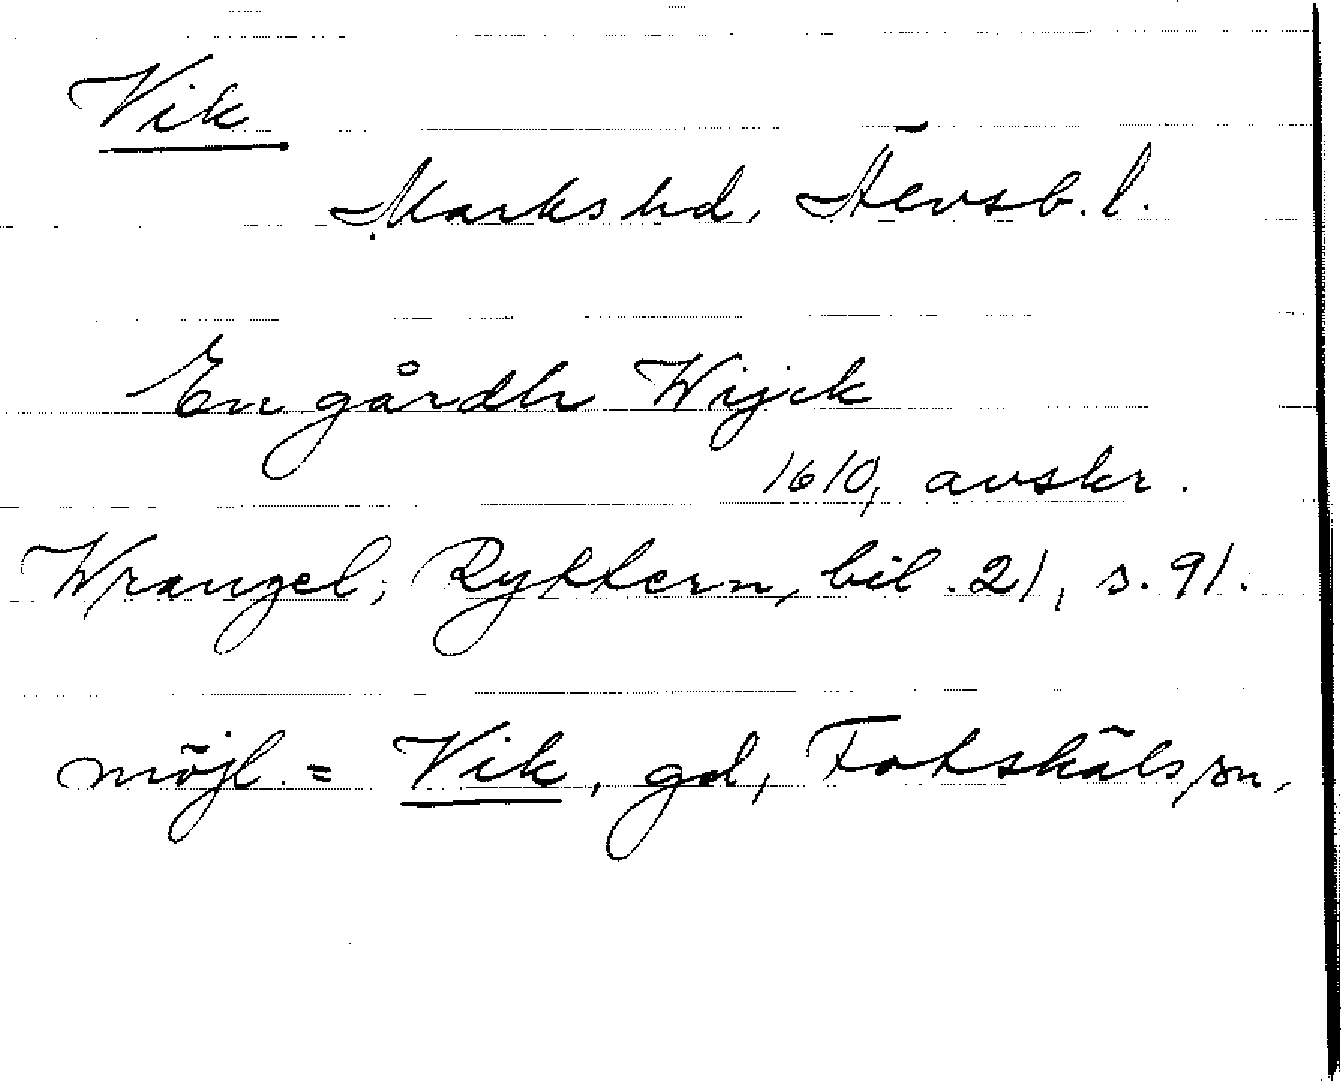 Vik
Marks hd, Älvsb. l.
En gårdh Wijck
1610, avskr.
Wrangel, Ryttern, bil. 21, s. 91.
möjl. = Vik, gd, Fotskäls sn,